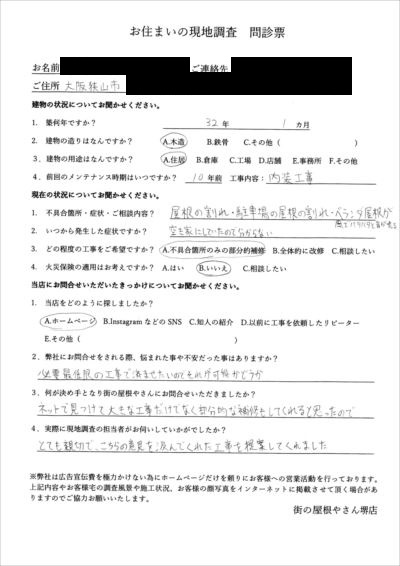 お住まいの現地調査 問診票
お名前 ご連絡先
ご住所 大阪狭山市
建物の状況についてお聞かせください。
1. 築何年ですか？ 32 年 1 カ月
2. 建物の造りはなんですか？ A.木造 B.鉄骨 C.その他（ ）
3. 建物の用途はなんですか？ A.住居 B.倉庫 C.工場 D.店舗 E.事務所 F.その他
4. 前回のメンテナンス時期はいつですか？ 10年前 工事内容： 内装工事
現在の状況についてお聞かせください。
1. 不具合箇所・症状・ご相談内容？ 屋根の割れ・駐車場の屋根の割れ・ベランダ屋根が
風でバタバタと音が鳴る
2. いつから発生した症状ですか？ 空き家にしていたので分からない
3. どの程度の工事をご希望ですか？ A.不具合箇所のみの部分的補修 B.全体的に改修 C.相談したい
4. 火災保険の適用はお考えですか？ A.はい B.いいえ C.相談したい
当店にお問合せいただいたきっかけについてお聞かせください。
1. 当店をどのように探しましたか？
A.ホームページ B.Instagram などの SNS C.知人の紹介 D.以前に工事を依頼したリピーター
E.その他（ ）
2. 弊社にお問合せをされる際、悩まれた事や不安だった事はありますか？
必要最低限の工事で済ませたいのでそれが可能かどうか
3. 何が決め手となり街の屋根やさんにお問合せいただきましたか？
ネットで見つけて大きな工事だけでなく部分的な補修もしてくれると思ったので
4. 実際に現地調査の担当者がお伺いしていかがでしたか？
とても親切で、こちらの意見を汲んでくれた工事を提案してくれました
※弊社は広告宣伝費を極力かけない為にホームページだけを頼りにお客様への営業活動を行っております。
上記内容やお客様宅の調査風景や施工状況、お客様の顔写真をインターネットに掲載させて頂く場合があ
りますのでご協力お願いいたします。
街の屋根やさん堺店